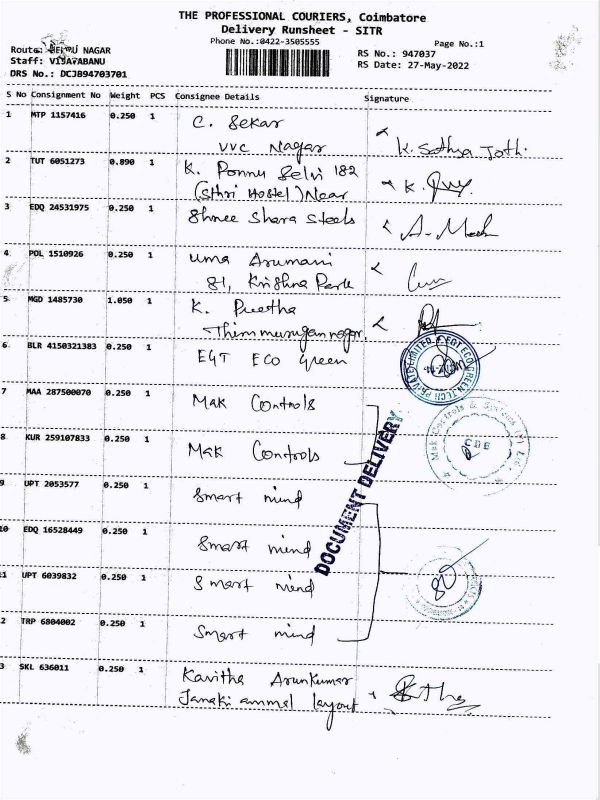 THE PROFESSIONAL COURIERS, Coimbatore
Delivery Runsheet - SITR
Phone No.:0422-3505555
Page No.:1
Route: NAGAR
RS No.: 947037
Staff: VIJAYABANU
RS Date: 27-May-2022
DRS No.: DCJB94703701
S No Consignment No Weight PCS Consignee Details Signature
1 MTP 1157416 0.250 1 C. Sekar
VVC Nagar K. Sathya Jothi
2 TUT 6051273 0.890 1 K. Ponnu Selvi 182
(Sthri Hostel) Near K.
3 EDQ 24531975 0.250 1 Shree Shara Steels
4 POL 1510926 0.250 1 Uma Arumani
81, Krishna Park
5 MGD 1485730 1.050 1 K. Preetha
Thimmurugan nagar.
6 BLR 4150321383 0.250 1 EGT ECO Green
7 MAA 287500070 0.250 1 Mak Controls
8 KUR 259107833 0.250 1 Mak Controls
CBE
DOCUMENT DELIVERY
9 UPT 2053577 0.250 1 Smart mind
10 EDQ 16528449 0.250 1 Smart mind
11 UPT 6039832 0.250 1 Smart mind
2 TRP 6804002 0.250 1 Smart mind
3 SKL 636011 0.250 1 Kavitha Arunkumar
Janaki ammal layout